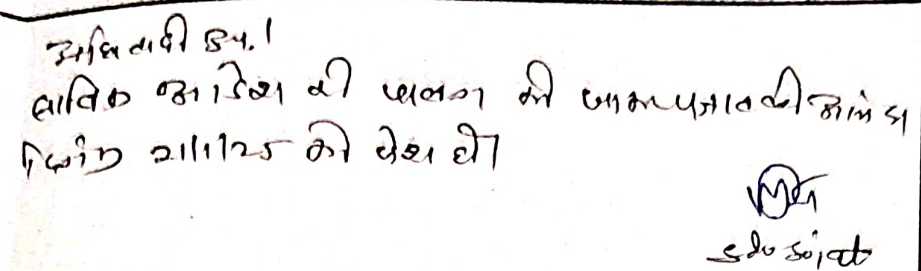 अभि वादी उप.।
साबिक आदेश की पालना की जावे पत्रावली
दिनांक 21/1/25 को पेश हो।
sdo sojat